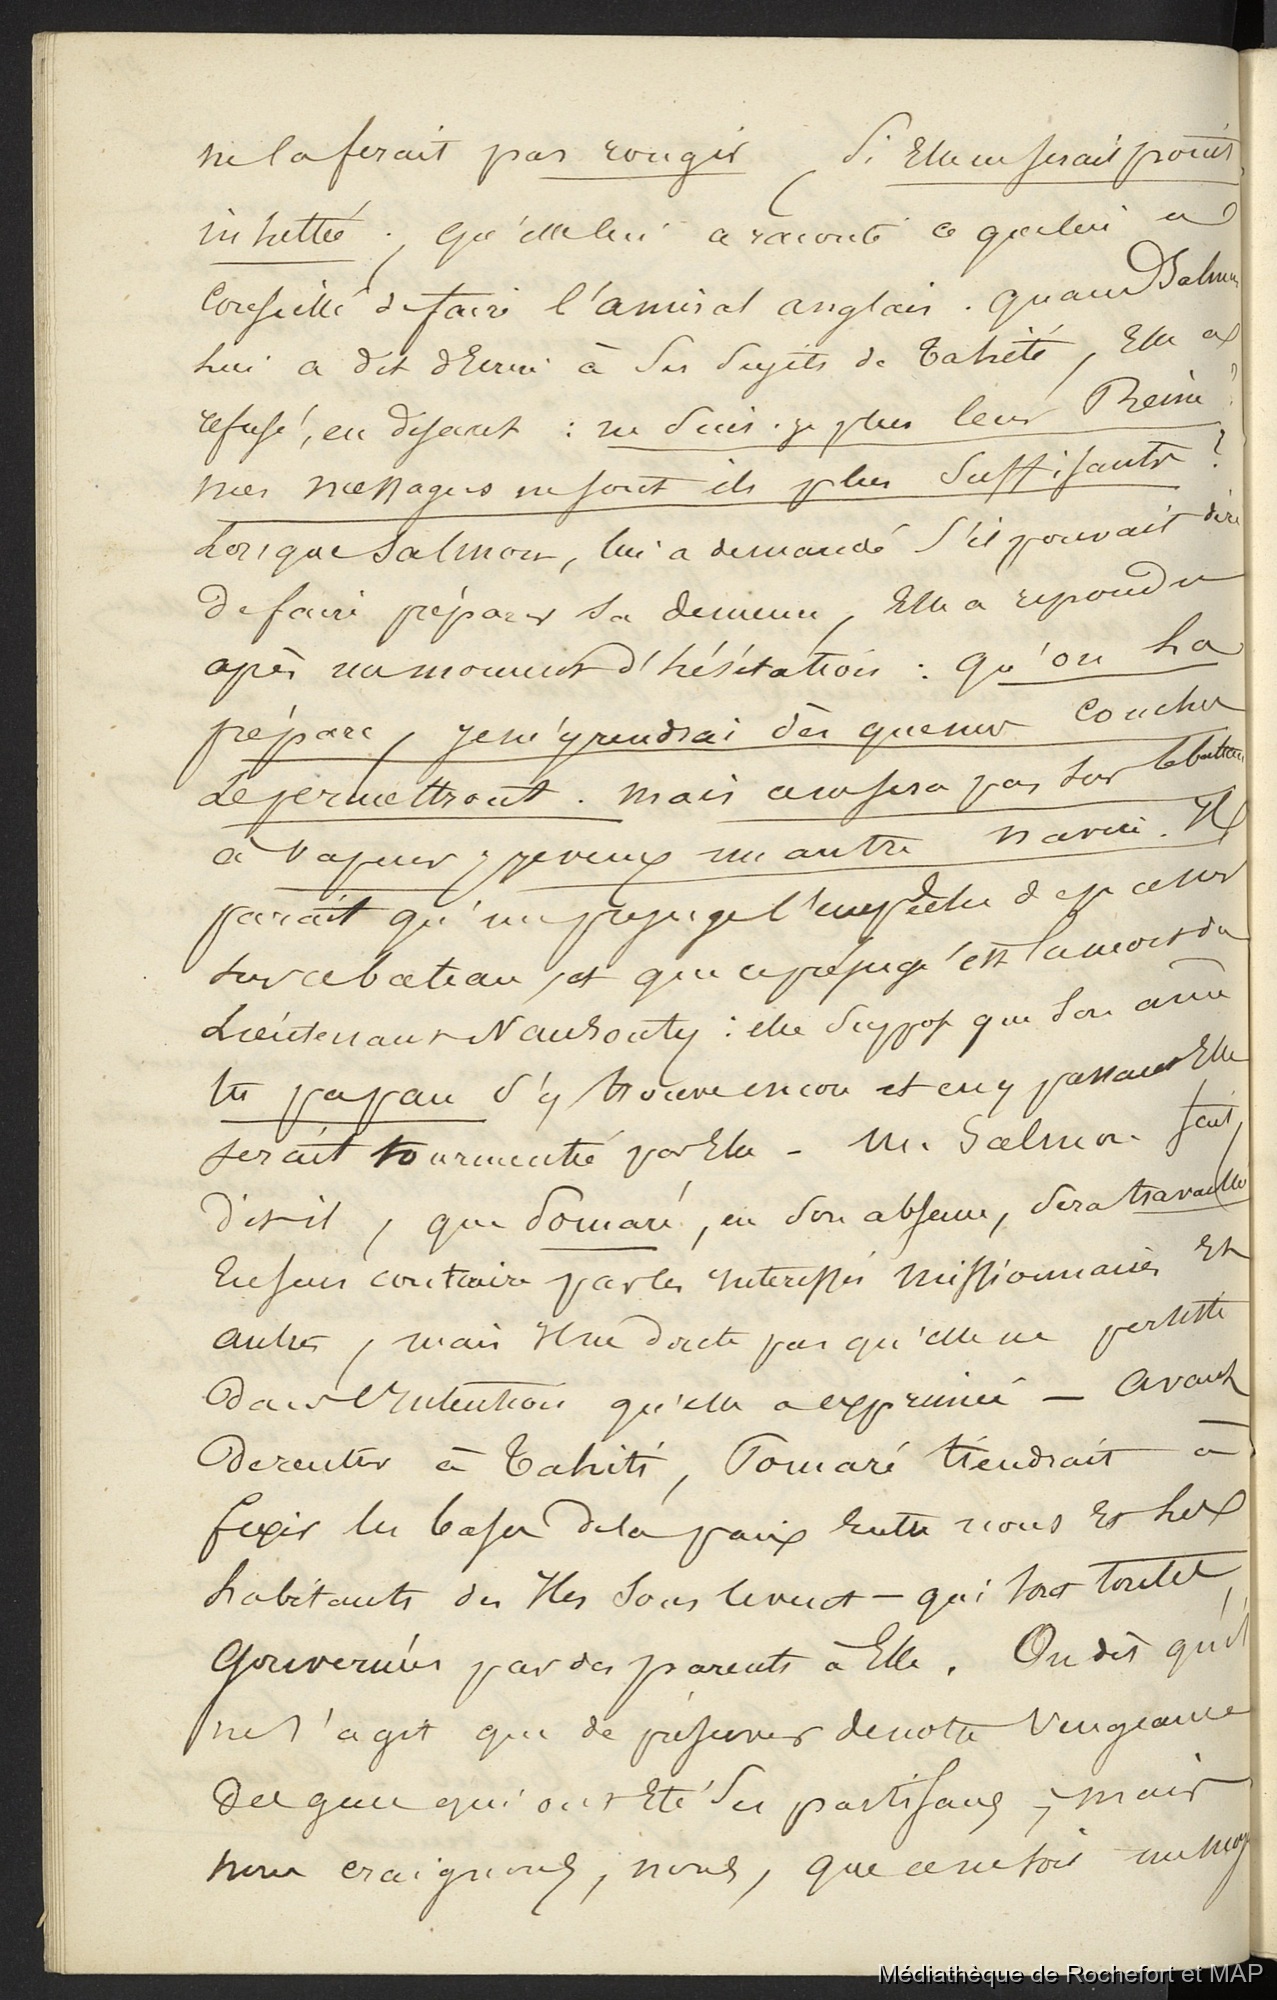 ne la ferait pas rougir, si Elle ne serait point
insultée ; qu'elle lui a raconté ce que lui a
Conseillé de faire l'amiral anglais. quand Salmon
lui a dit d'Ecrire à Ses Sujets de Tahiti, Elle a
refusé, en disant : ne Suis-je plus leur Reine ?
mes messagers ne sont ils plus Suffisants ?
Lorsque Salmon, lui a demandé s'il pouvait dire
De faire préparer Sa demeure, Elle a repondu
après un moment d'hésitation : qu'on la
prépare, je m'y rendrai dès que mes Couches
Le permettront. mais ce ne sera pas Sur le bateau
à Vapeur ; je veux un autre navire. Il
parait qu'un préjugé l'empêche de passer
Sur ce bateau, et que ce préjugé est la mort du
Lieutenant Nansouty : elle Suppose que Son âme
tu papau S'y trouve encore et en y passant Elle
serait tourmentée par Elle - M. Salmon sait,
dit-il, que Pomaré, en Son absence, Sera travaillée
En sens contraire par les interessés missionnaires Et
autres, mais Il ne doute pas qu'elle ne persiste
Dans l'Intention qu'elle a exprimée — Avant
De rentrer à Tahiti, Pomaré tiendrait à
fixer les bases de la paix Entre nous Et les
habitants des Iles Sous le vent — qui sont toutes
Gouvernées par des parents à Elle. On dit qu'il
ne s'agit que de préserver de notre Vengeance
Des gens qui ont Eté Ses partisans ; mais
nous craignons, nous, que ce ne soit un moy
Médiathèque de Rochefort et MAP